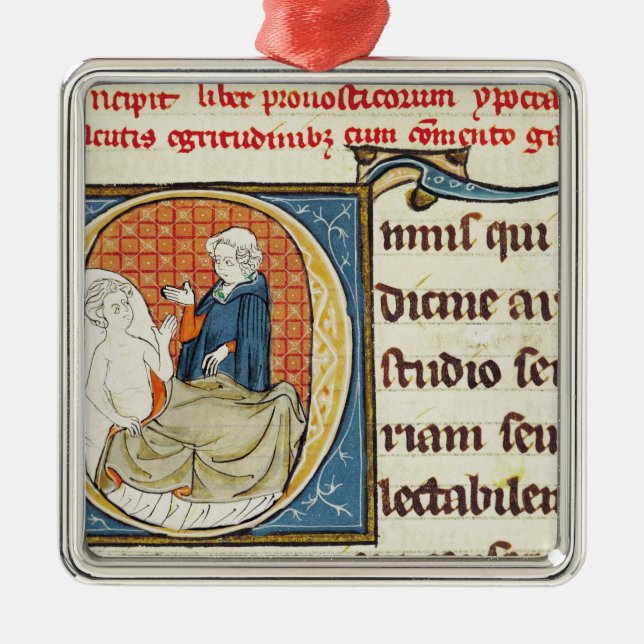 ncipit liber pronosticorum ypocra
acutis egritudinibꝫ cum cōmento ga
O
mnis qui
dicine ar
studio seu
riam seu
lectabilem